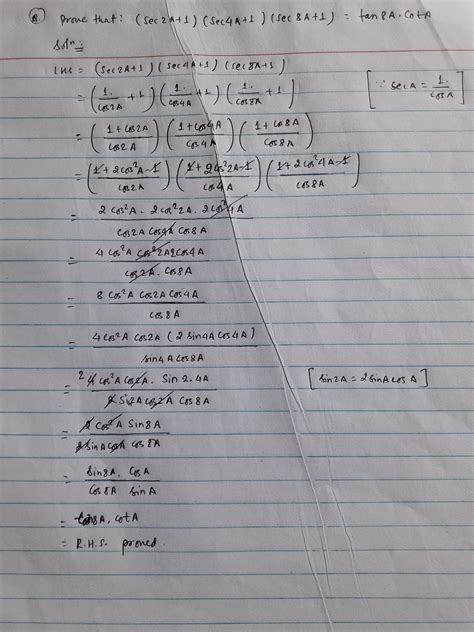 Q. Prove that: (sec2A+1) (sec4A+1) (sec 8A+1) = tan8A.CotA
Solⁿ:-
LHS = (sec2A+1) (sec4A+1) (sec8A+1)
= (1/cos2A + 1) (1/cos4A + 1) (1/cos8A + 1) [∵ secA = 1/cosA]
= (1+cos2A/cos2A) (1+cos4A/cos4A) (1+cos8A/cos8A)
= (1+2cos²A-1/cos2A) (1+2cos²2A-1/cos4A) (1+2cos²4A-1/cos8A)
= 2cos²A. 2cos²2A. 2cos²4A/cos2A cos4A cos8A
= 4cos²A cos²2A 2cos4A/cos2A. cos8A
= 8 cos²A cos2A cos4A/cos8A
= 4cos²A cos2A (2 sin4A cos4A)/sin4A cos8A
= 2 4cos²A cos2A. Sin 2.4A/2 Sin2A cos2A cos8A [sin2A = 2sinA cosA]
= 2 cos²A Sin8A/2 sinA cosA cos8A
= sin8A. cosA/cos8A sinA
= tan8A. cotA
= R.H.S. proved.